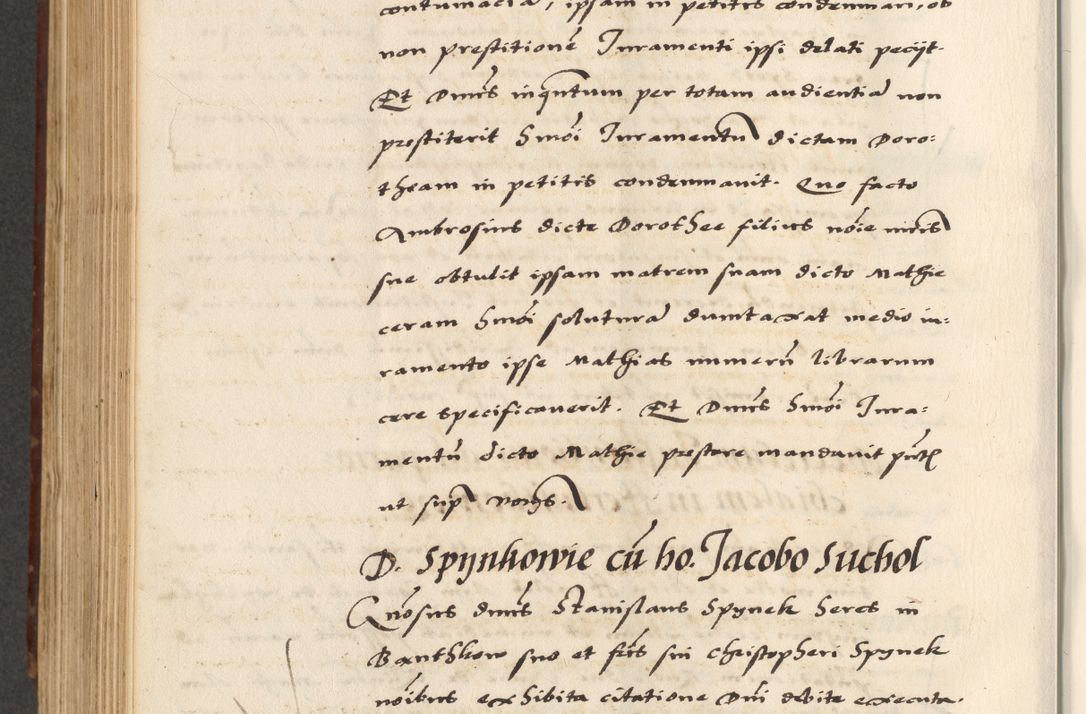 contumacia, ipsam in petitis condemnari, ob
non prestitionē Juramenti ipsi delati pecijt.
Et Dnūs inquantum per totam audientiā non
prestiterit hmōi Juramentū dictam Doro:
theam in petitis condemnavit. Quo facto
Ambrosius dicte Dorothee filius nōie mr̄is
sue obtulit ipsam matrem suam dicto Mathie
ceram hmōi soluturā dumtaxat medio iu:
ramento ipse Mathias numerū librarum
cere specificaverit. Et Dnūs hmōi Jura:
mentū dicto Mathie prestare mandavit
ut sup̄
D. Spynkowie cū ho. Jacobo Suchol
Gn̄osus dnūs Stanislaus Spynek heres in
Banthkow suo et fr̄is sui Christopheri Spynek
nōibus exhibita citatione Dn̄i debite executa.